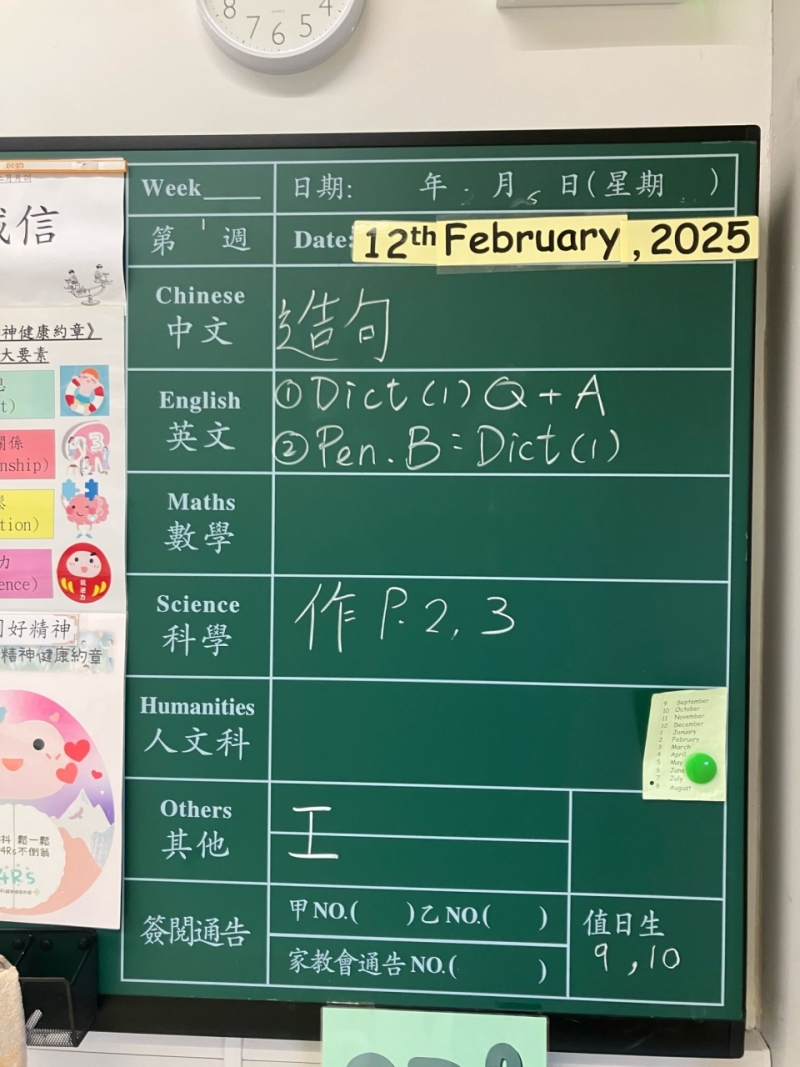 8 7 6 5 4
Week____ 日期: 年 月 日(星期 )
第 週 Date: 12th February, 2025
Chinese
中文
造句
English
英文
① Dict (1) Q + A
② Pen. B: Dict (1)
Maths
數學
Science
科學
作 P. 2, 3
Humanities
人文科
Others
其他
工
簽閱通告
甲 NO.( )乙 NO.( )
家教會通告 NO.( )
值日生
9, 10
9 September
10 October
11 November
12 December
1 January
2 February
3 March
4 April
5 May
6 June
7 July
8 August
信
神健康約章》
大要素
t)
關係
nship)
tion)
力
ence)
好精神
精神健康約章
鬆一鬆
4Rs不倒翁
4Rs